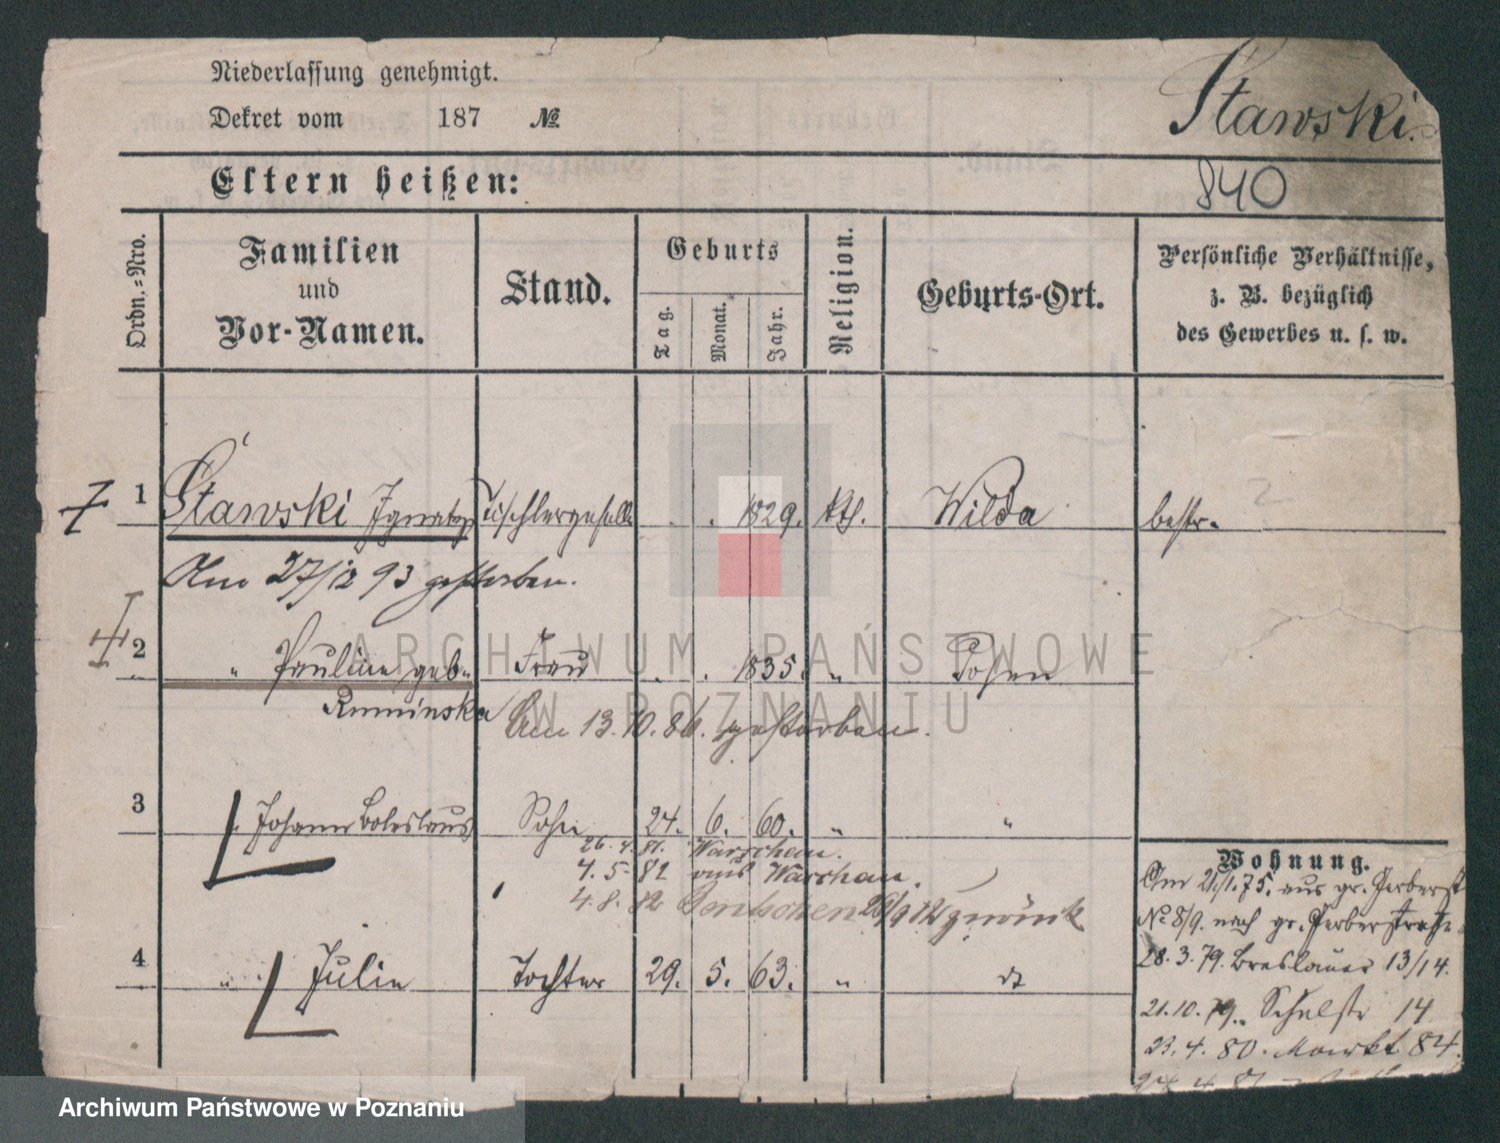 Niederlassung genehmigt.
Dekret vom 187 №
Stawski.
840
Eltern heißen:
Ordn.=Nro.
Familien
und
Vor-Namen.
Stand.
Geburts
Tag.
Monat.
Jahr.
Religion.
Geburts-Ort.
Persönliche Verhältnisse,
z. B. bezüglich
des Gewerbes u. s. w.
1 Stawski Ignatz Tischlergeselle . . 1829. kth. Wilda bestr.
Am 27/12 93 gestorben.
2 " Pauline geb. Frau . . 1835. " Posen
Ruminska Am 13.10.86. gestorben.
3 Johann Boleslaus Sohn 24. 6. 60. " "
26.4.81. Warschau.
4.5.82 aus Warschau.
4.8.82 26/9 82 zurück
4 " Julie Tochter 29. 5. 63. " dt
Wohnung.
Am 21.1.75. aus gr. Gerberst
No 8/9. nach gr. Gerberstraße
28.3.79. Breslauer 13/14.
21.10.79. Schulstr 14
23.4.80. Markt 84.
ARCHIWUM PAŃSTWOWE
W POZNANIU
Archiwum Państwowe w Poznaniu